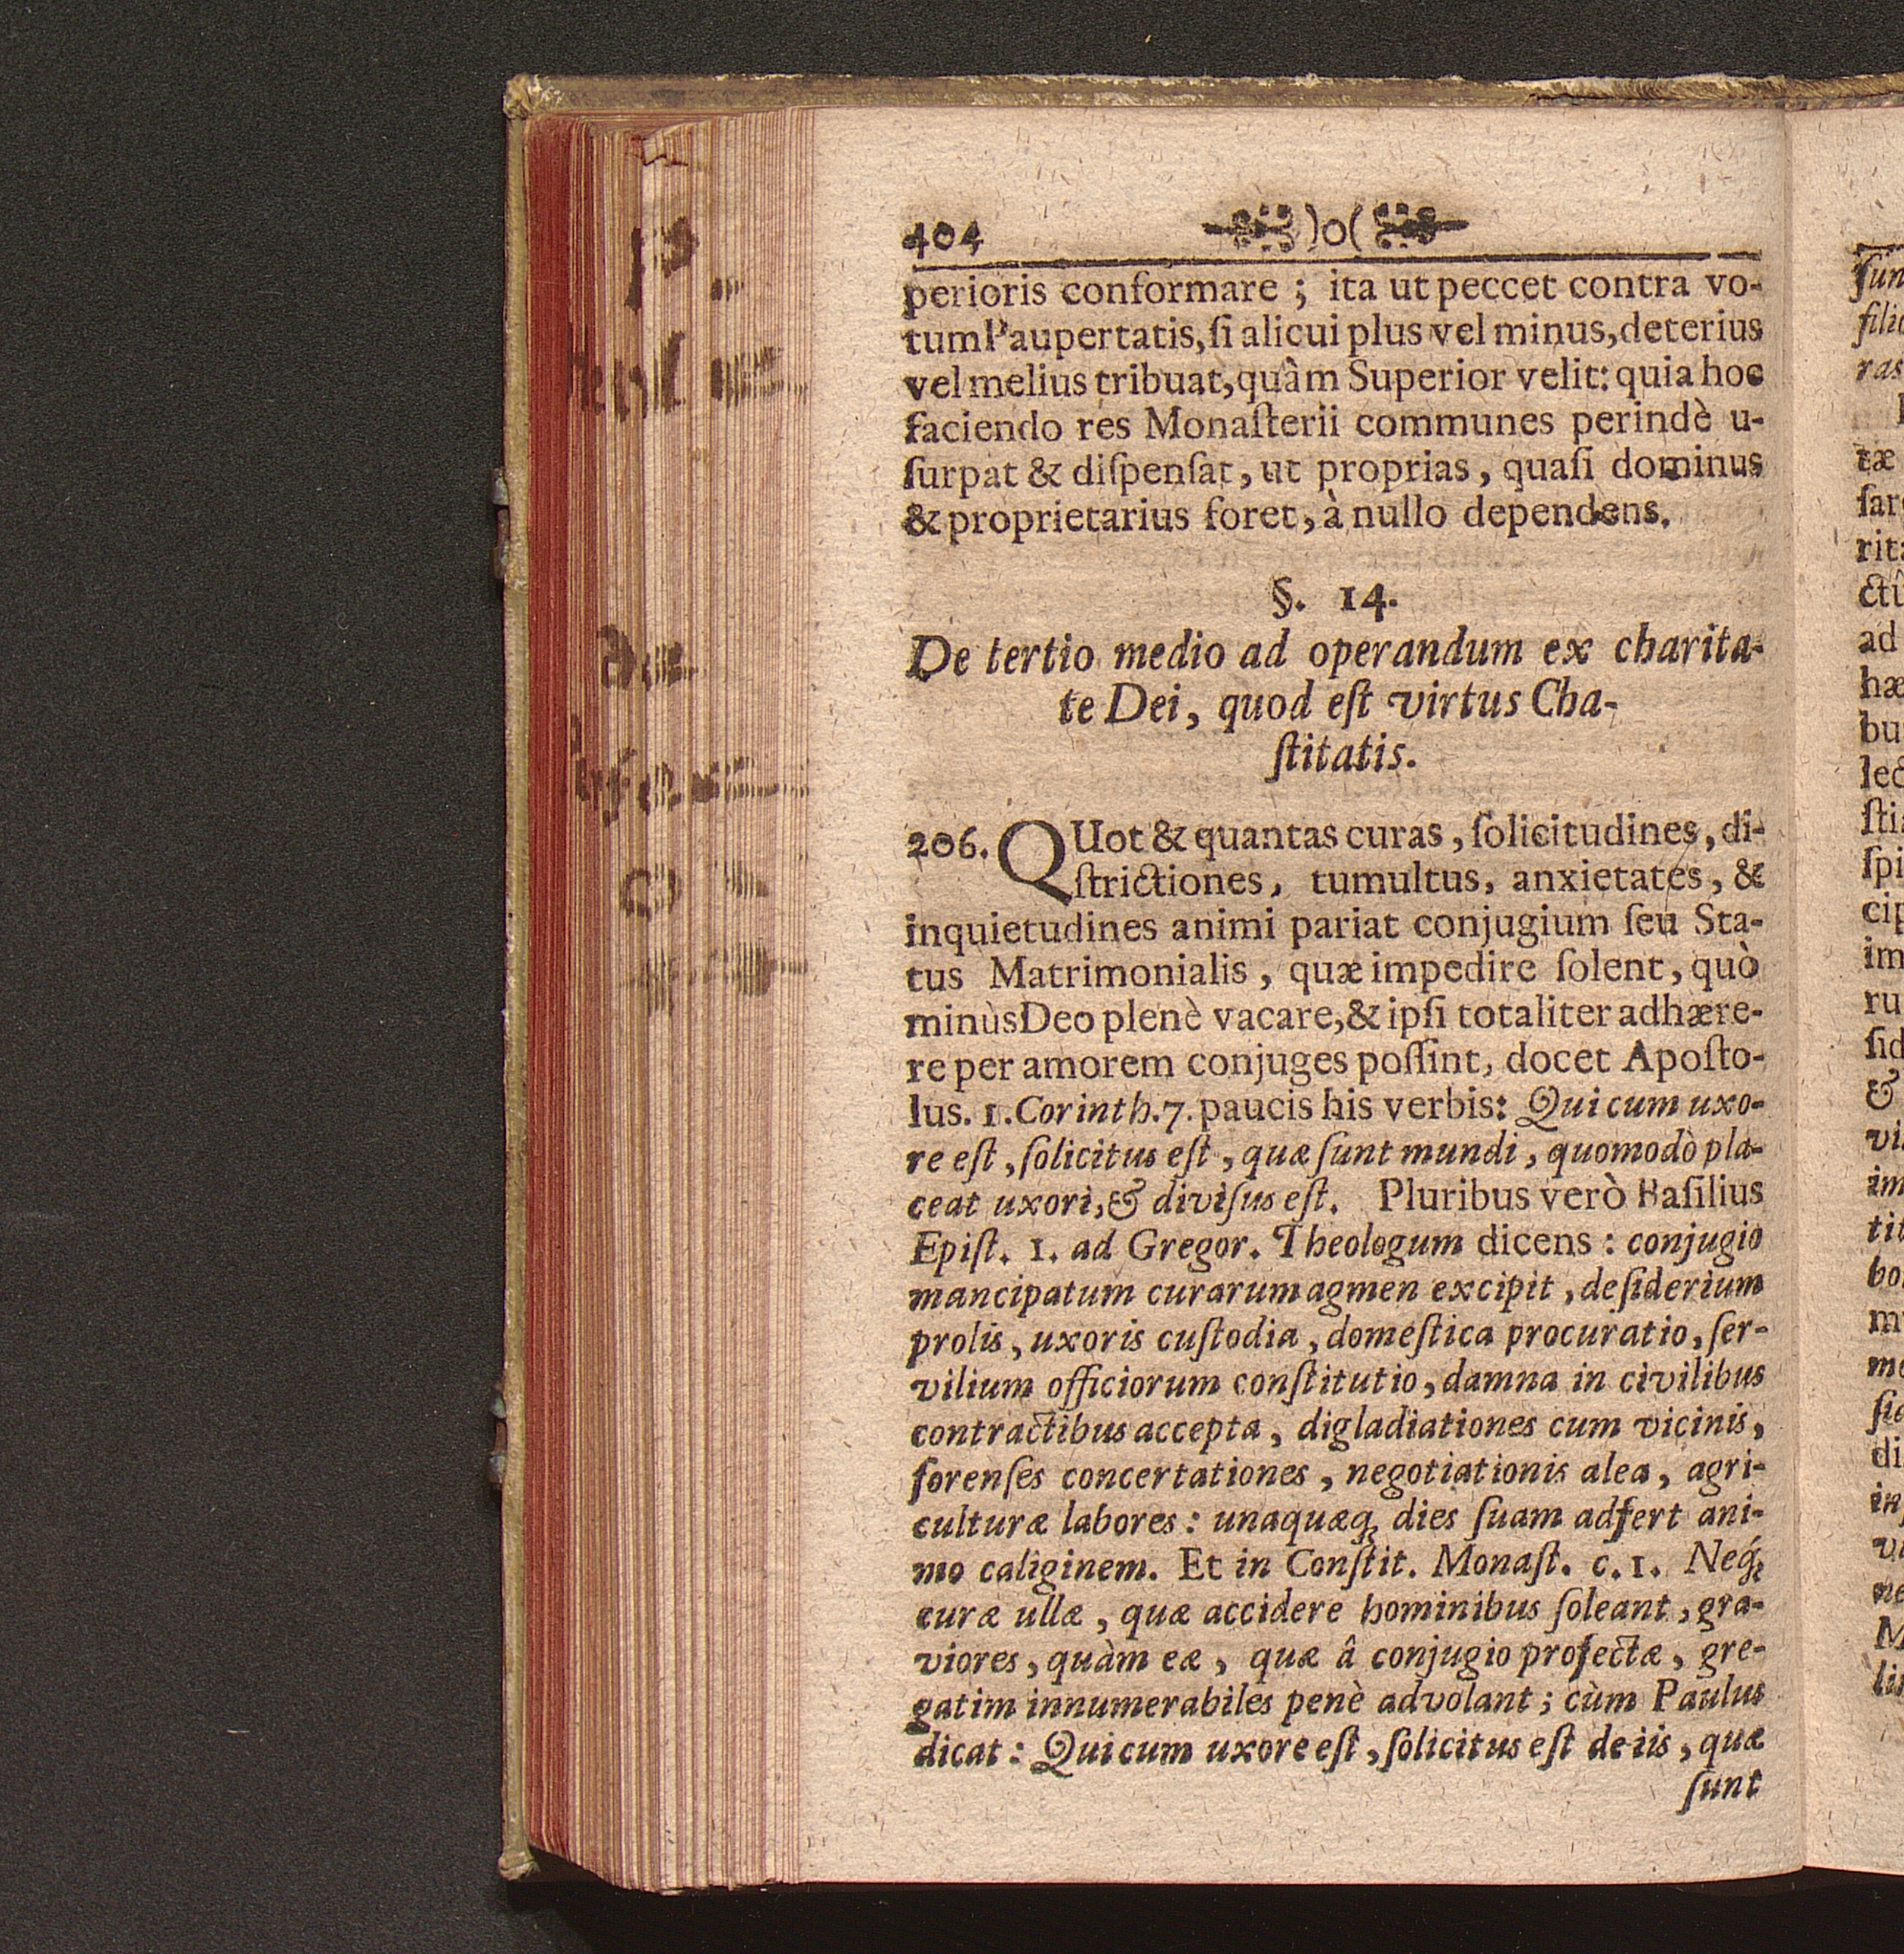 404 )o(
perioris conformare ; ita ut peccet contra vo-
tum Paupertatis, ſi alicui plus vel minus, deterius
vel melius tribuat, quàm Superior velit: quia hoc
faciendo res Monaſterii communes perindè u-
ſurpat & diſpenſat, ut proprias, quaſi dominus
& proprietarius foret, à nullo dependens.
§. 14.
De tertio medio ad operandum ex charita-
te Dei, quod eſt virtus Cha-
ſtitatis.
206. QUot & quantas curas, ſolicitudines, di-
ſtrictiones, tumultus, anxietates, &
inquietudines animi pariat conjugium ſeu Sta-
tus Matrimonialis, quæ impedire ſolent, quò
minùs Deo plenè vacare, & ipſi totaliter adhære-
re per amorem conjuges poſſint, docet Apoſto-
lus. 1. Corinth. 7. paucis his verbis: Qui cum uxo-
re eſt, ſolicitus eſt, quæ ſunt mundi, quomodò pla-
ceat uxori, & diviſus eſt. Pluribus verò Baſilius
Epiſt. 1. ad Gregor. Theologum dicens : conjugio
mancipatum curarum agmen excipit, deſiderium
prolis, uxoris cuſtodia, domeſtica procuratio, ſer-
vilium officiorum conſtitutio, damna in civilibus
contractibus accepta, digladiationes cum vicinis,
forenſes concertationes, negotiationis alea, agri-
culturæ labores: unaquæq; dies ſuam adfert ani-
mo caliginem. Et in Conſtit. Monaſt. c. 1. Neq́;
curæ ullæ, quæ accidere hominibus ſoleant, gra-
viores, quàm eæ, quæ â conjugio profectæ, gre-
gatim innumerabiles penè advolant; cùm Paulus
dicat: Qui cum uxore eſt, ſolicitus eſt de iis, quæ
ſunt